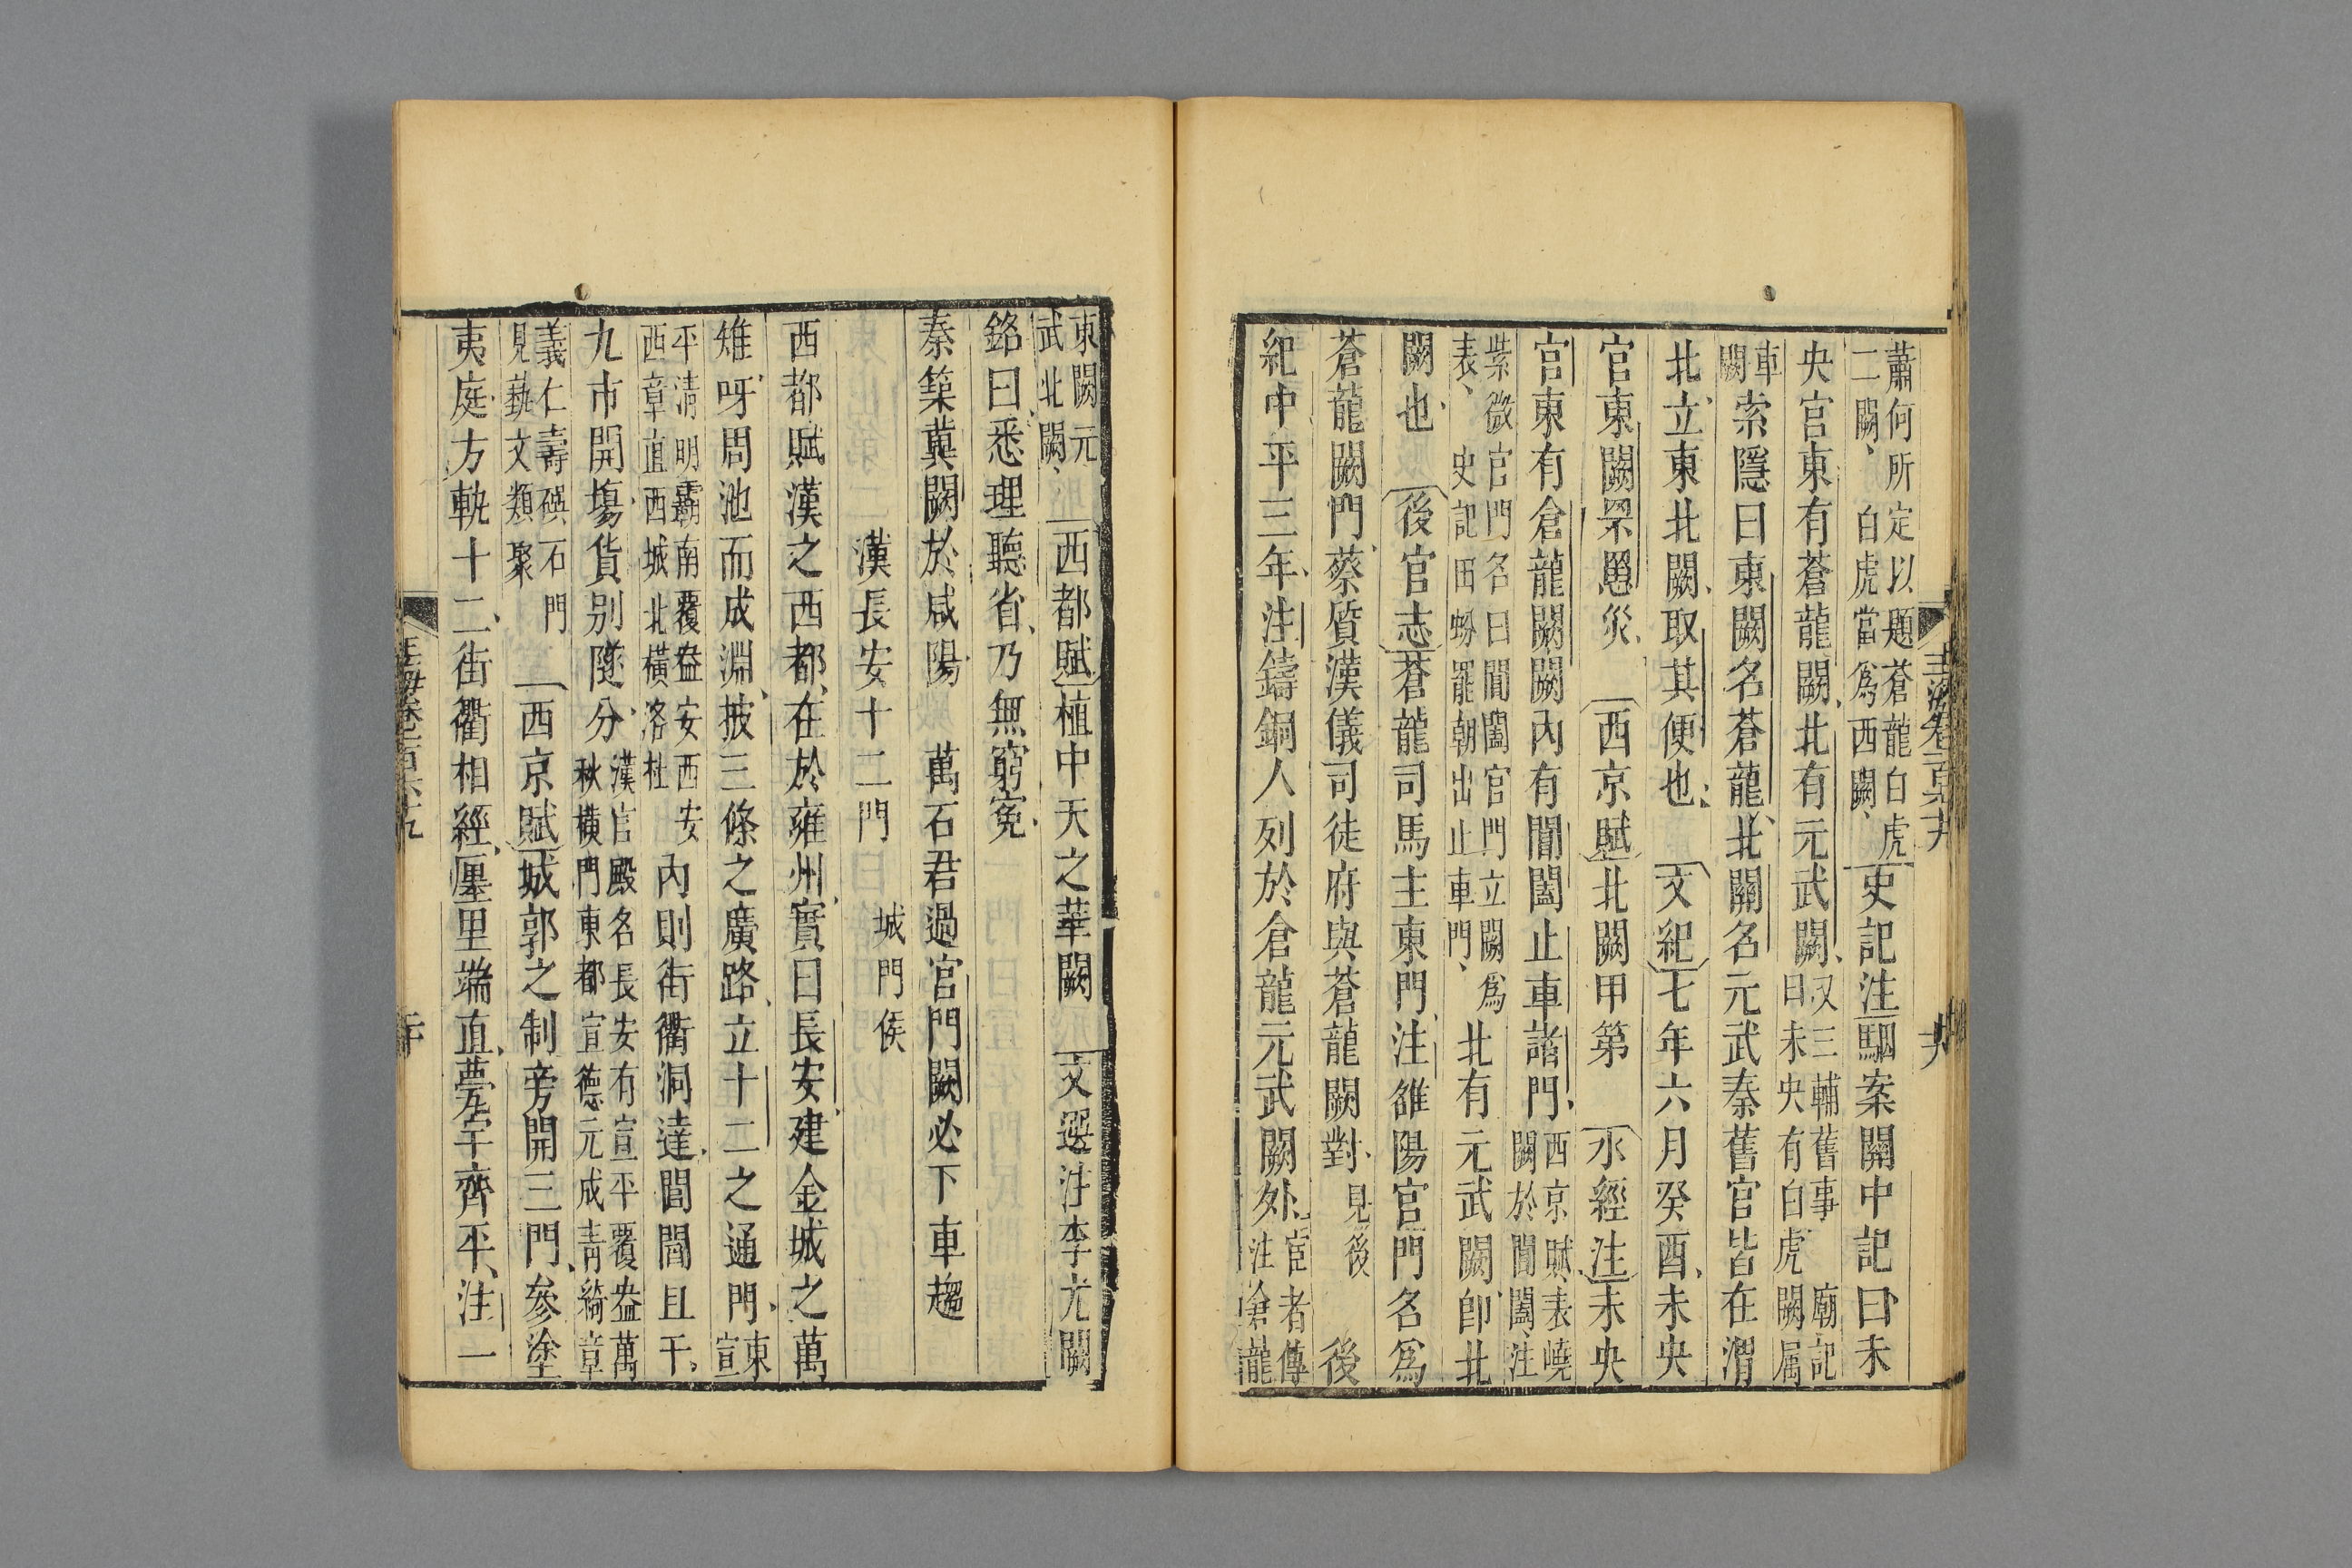 蕭何所定以題蒼龍白虎
二闕、白虎當爲西闕、
史記注駰案關中記曰未
央宮東有蒼龍闕、北有元武闕、
又三輔舊事
曰未央有白虎
廟記
闕属
車
闕
索隱曰東闕名蒼龍、北闕名元武秦舊宮皆在渭
北、立東北闕、取其便也、文紀七年六月癸酉、未央
宮東闕罘罳災、西京賦北闕甲第 水經注未央
宮東有倉龍闕闕內有閶闔止車諸門、
西京賦、表嶢
闕於閶闔、注
紫微宮門名曰閶闔宮門立闕爲
表、史記田蚡罷朝出止車門、
北有元武闕、卽北
闕也、後宮志蒼龍司馬主東門、注雒陽宮門名爲
蒼龍闕門、蔡質漢儀司徒府與蒼龍闕對、見後 後
紀中平三年、注鑄銅人列於倉龍元武闕外、
宦者傳
注倉龍
玉海卷一百六十九
東闕元
武北闕、
西都賦植中天之華闕 文選注李尤闕
銘曰、悉理聽省、乃無窮冤、
秦築冀闕於咸陽 萬石君過宮門闕必下車趨
漢長安十二門 城門侯
西都賦漢之西都、在於雍州、實曰長安、建金城之萬
雉、呀周池而成淵、披三條之廣路、立十二之通門、
東
宣
平清明霸南覆盎安西安
西章直西城北橫洛杜
內則街衢洞達、閭閻且千、
九市開塲、貨别隧分、
漢宮殿名長安有宣平覆盎萬
秋橫門東都宣德元成靑綺章
義仁壽磒石門
見藝文類聚
西京賦城郭之制旁開三門、參塗
夷庭、方軌十二、街衢相經、廛里端直、甍宇齊平、注一